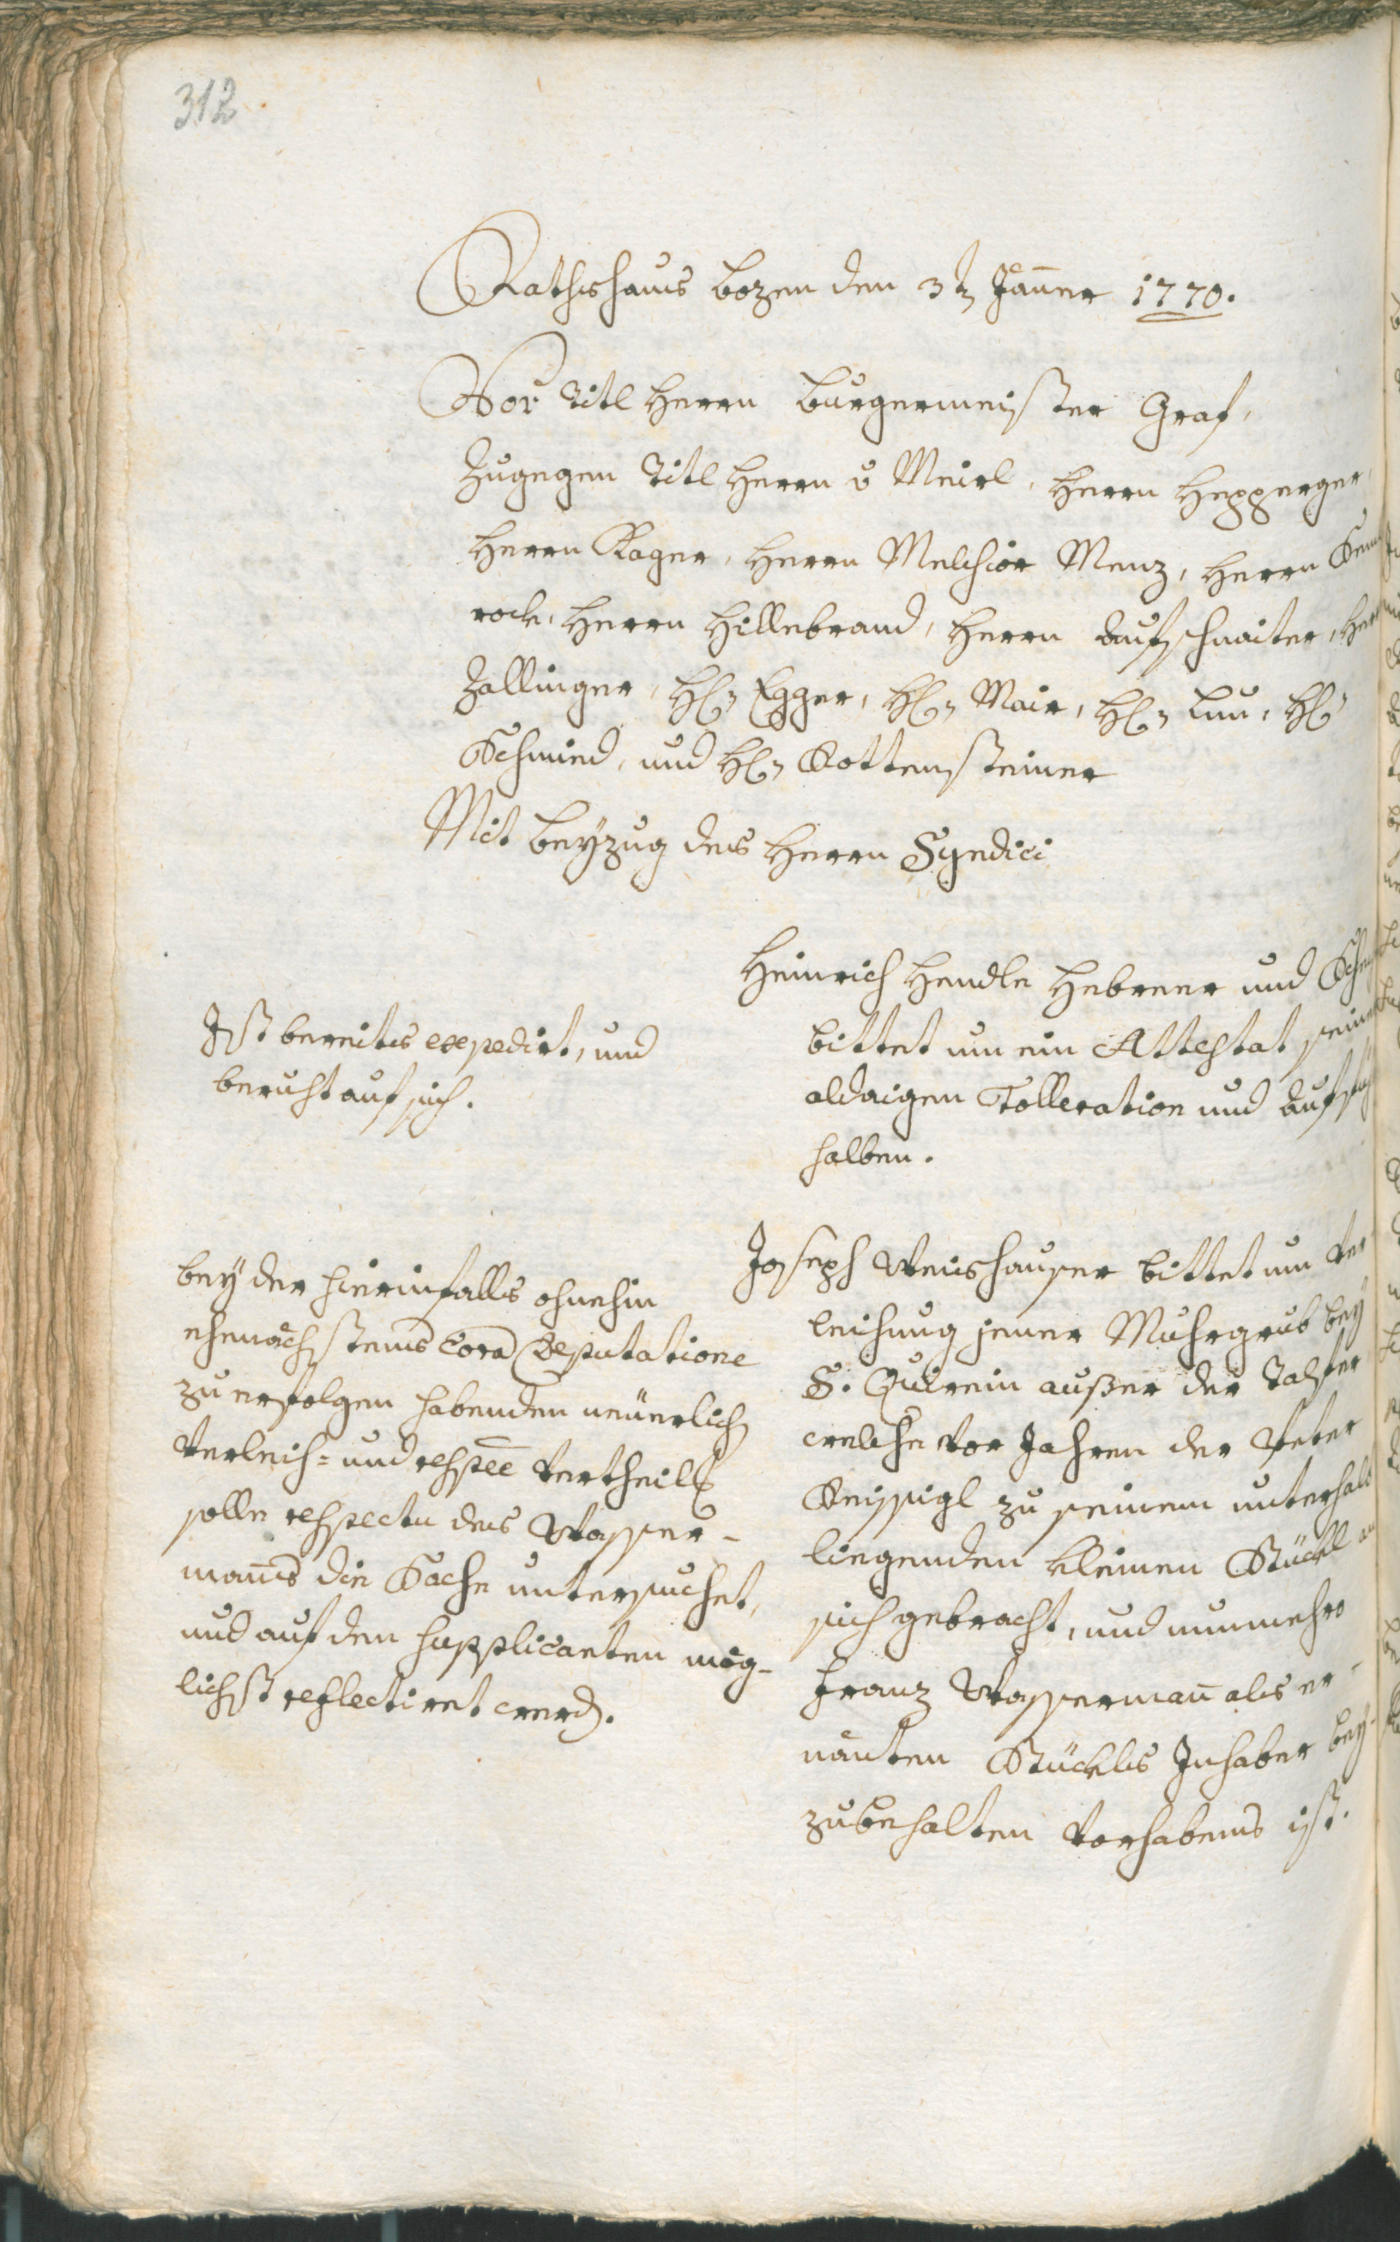 312
Rathshaus Bozen den 3t Jänner 1770.
Vor Titl Herrn Burgermeister Graf,
Zugegen Titl Herrn v Menz, Herrn Hepperger,
Herrn Rager, Herrn Melchior Menz, Herrn
rock, Herrn Hillebrand, Herrn Aufschnaiter, Herr
Zallinger, H: Egger, H: Mair, H: Lun, H:
Schmied, und H: Kottensteiner
Mit Beyzug des Herrn Syndici
Heinrich Hendle Hebreer und
bittet um ein Attestat seiner
aldaigen Tolleration und
halben.
Ist bereits expedirt, und
beruht auf sich.
Joseph Weishauser bittet um Ver
leihung jener Muhrgrub bey
S. Quirein ausser der Talfer
welche vor Jahren der Peter
Reispigl zu seinem unterhalb
liegenden kleinen Stückl an
sich gebracht, und nunmehro
Franz Wassermañ als er-
nanten Stückls Inhaber bey-
zubehalten Vorhabens ist.
Bey der hierinfalls ohnehin
ehenächstens Corā Deputatione
zu erfolgen habenden neuerlich
Verleih= und respēe Vertheill:
solle respectu des Wasser-
mañs die Sache untersuchet,
und auf den supplicanten mög-
lichst reflectiret werd.